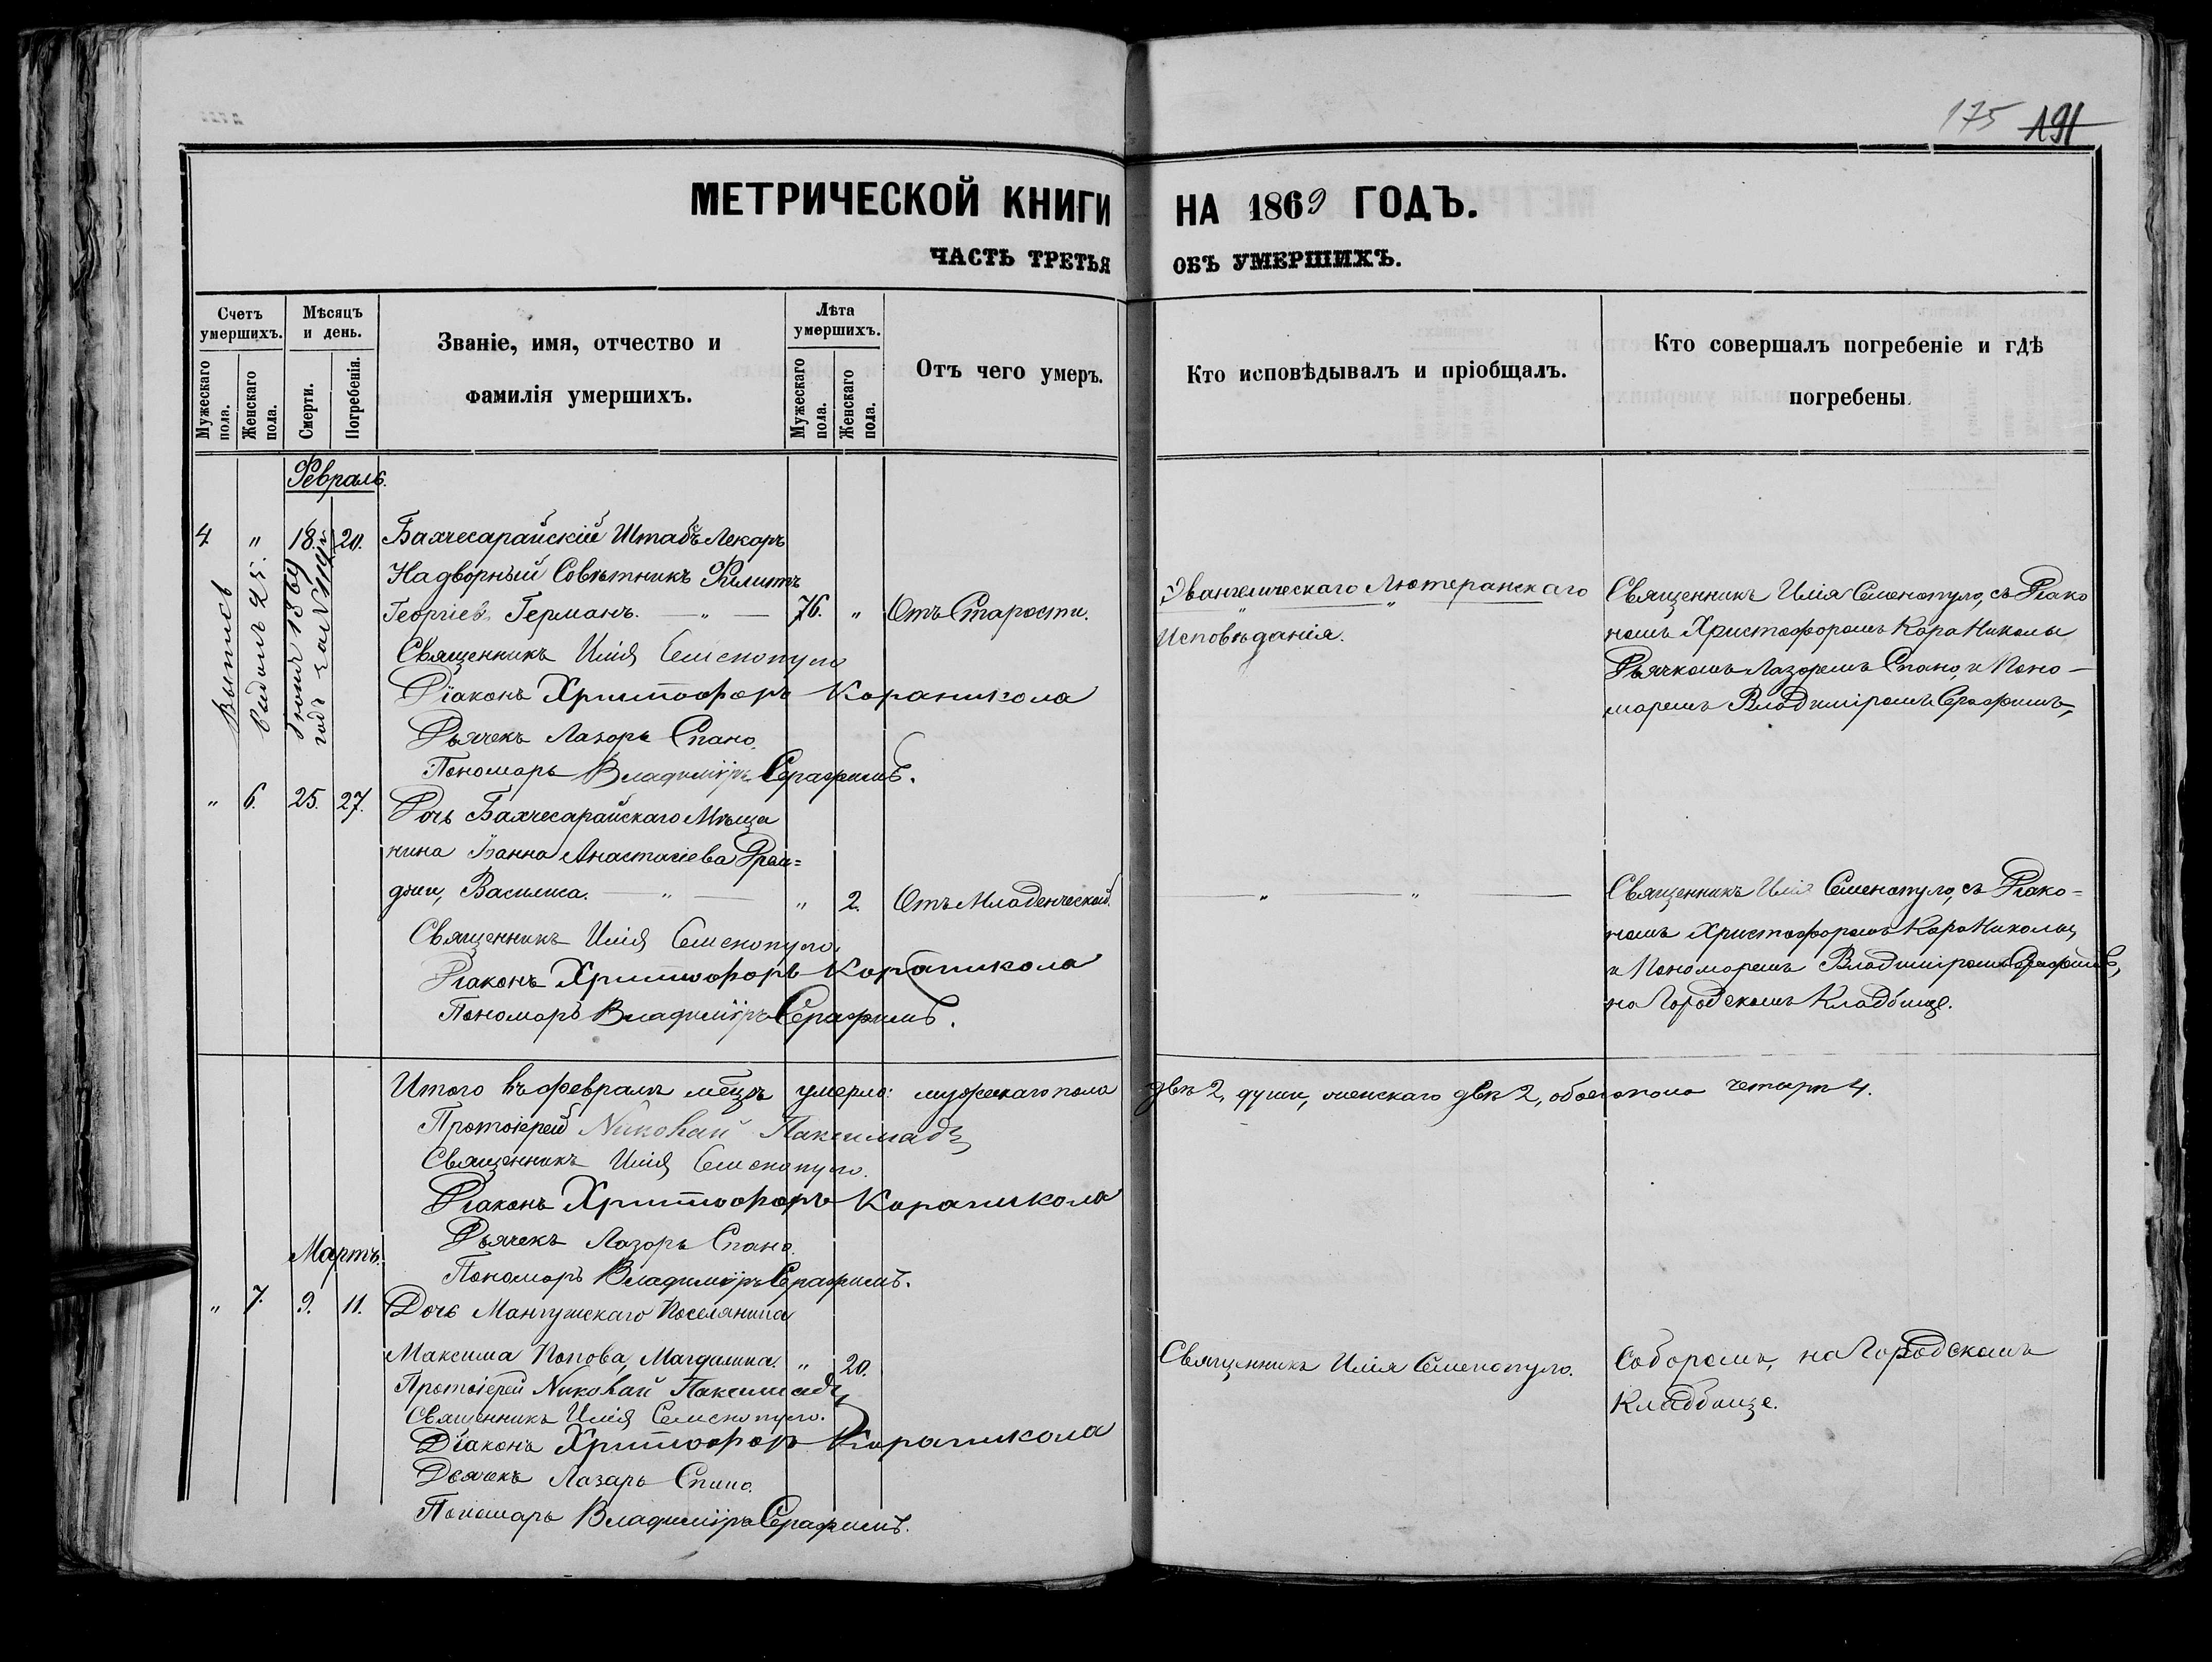 175 191
МЕТРИЧЕСКОЙ КНИГИ НА 1869 ГОДЪ.
ЧАСТЬ ТРЕТЬЯ ОБЪ УМЕРШИХЪ.
Счетъ умершихъ.
Мужескаго пола.
Женскаго пола.
Мѣсяцъ и день.
Смерти.
Погребенія.
Званіе, имя, отчество и
фамилія умершихъ.
Лѣта умершихъ.
Мужескаго пола.
Женскаго пола.
Отъ чего умеръ.
Кто исповѣдывалъ и пріобщалъ.
Кто совершалъ погребеніе и гдѣ
погребены.
Февраль.
4. " 18. 20. Бахчесарайскій Штабъ Лекарь
Надворный Совѣтникъ Филипъ
Георгіев Германъ. — " — 76. " Отъ Старости.
Эвангелическаго Лютеранскаго
Исповѣданія.
Священникъ Илія Семенопуло, съ Діако
номъ Христофоромъ КараНиколы
Дьячкомъ Лазаремъ Спано, и Поно-
маремъ Владиміромъ Серафимъ,
Выпись
1869
годъ за №
Священникъ Илія Семенопуло
Діаконъ Христофоръ Караникола
Дьячекъ Лазарь Спано.
Пономарь Владиміръ Серафимъ.
" 6. 25. 27. Дочь Бахчесарайскаго Мѣща
нина Іванна Анастасіева
Василиса. — " — " 2. Отъ Младенческой.
— " — " —
Священникъ Илія Семенопуло, съ Діако-
номъ Христофоромъ КараНиколы,
и Пономаремъ Владиміромъ Серафимъ,
на Городскомъ Кладбище.
Священникъ Илія Семенопуло.
Діаконъ Христофоръ Караникола
Пономарь Владиміръ Серафимъ.
Итого въ февралѣ мѣцѣ умерло: мужескаго пола двѣ 2, души, женскаго двѣ 2, обоего пола четыре 4.
Протоіерей Николай Паксимадз
Священникъ Илія Семенопуло.
Діаконъ Христофоръ Караникола
Дьячекъ Лазарь Спано.
Пономарь Владиміръ Серафимъ.
Мартъ.
" 7. 9. 11. Дочь Мангушскаго Поселянина
Максима Попова, Магдалина. " 20.
Священникъ Илія Семенопуло.
Соборомъ, на Городскомъ
Кладбище.
Протоіерей Николай Паксимадз
Священникъ Илія Семенопуло.
Діаконъ Христофоръ Караникола
Дьячекъ Лазарь Спано.
Пономарь Владиміръ Серафимъ.